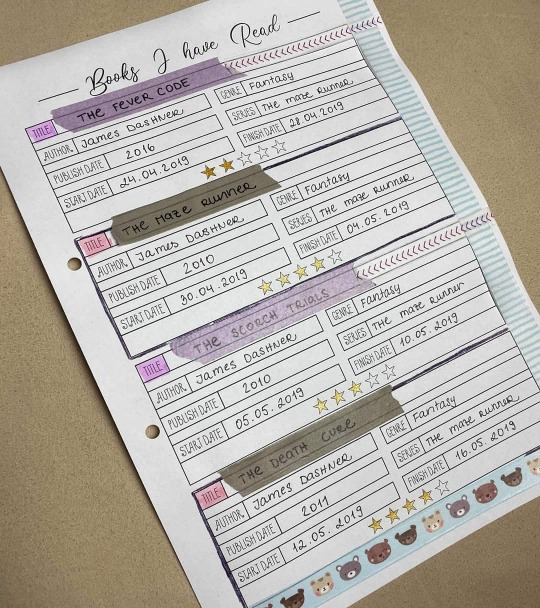 Books I have Read
TITLE THE FEVER CODE
AUTHOR James Dashner GENRE Fantasy
PUBLISH DATE 2016 SERIES The maze Runner
START DATE 24.04.2019 FINISH DATE 28.04.2019
TITLE THE MAZE RUNNER
AUTHOR James Dashner GENRE Fantasy
PUBLISH DATE 2010 SERIES The maze Runner
START DATE 30.04.2019 FINISH DATE 04.05.2019
TITLE THE SCORCH TRIALS
AUTHOR James Dashner GENRE Fantasy
PUBLISH DATE 2010 SERIES The maze runner
START DATE 05.05.2019 FINISH DATE 10.05.2019
TITLE THE DEATH CURE
AUTHOR James Dashner GENRE Fantasy
PUBLISH DATE 2011 SERIES The maze runner
START DATE 12.05.2019 FINISH DATE 16.05.2019